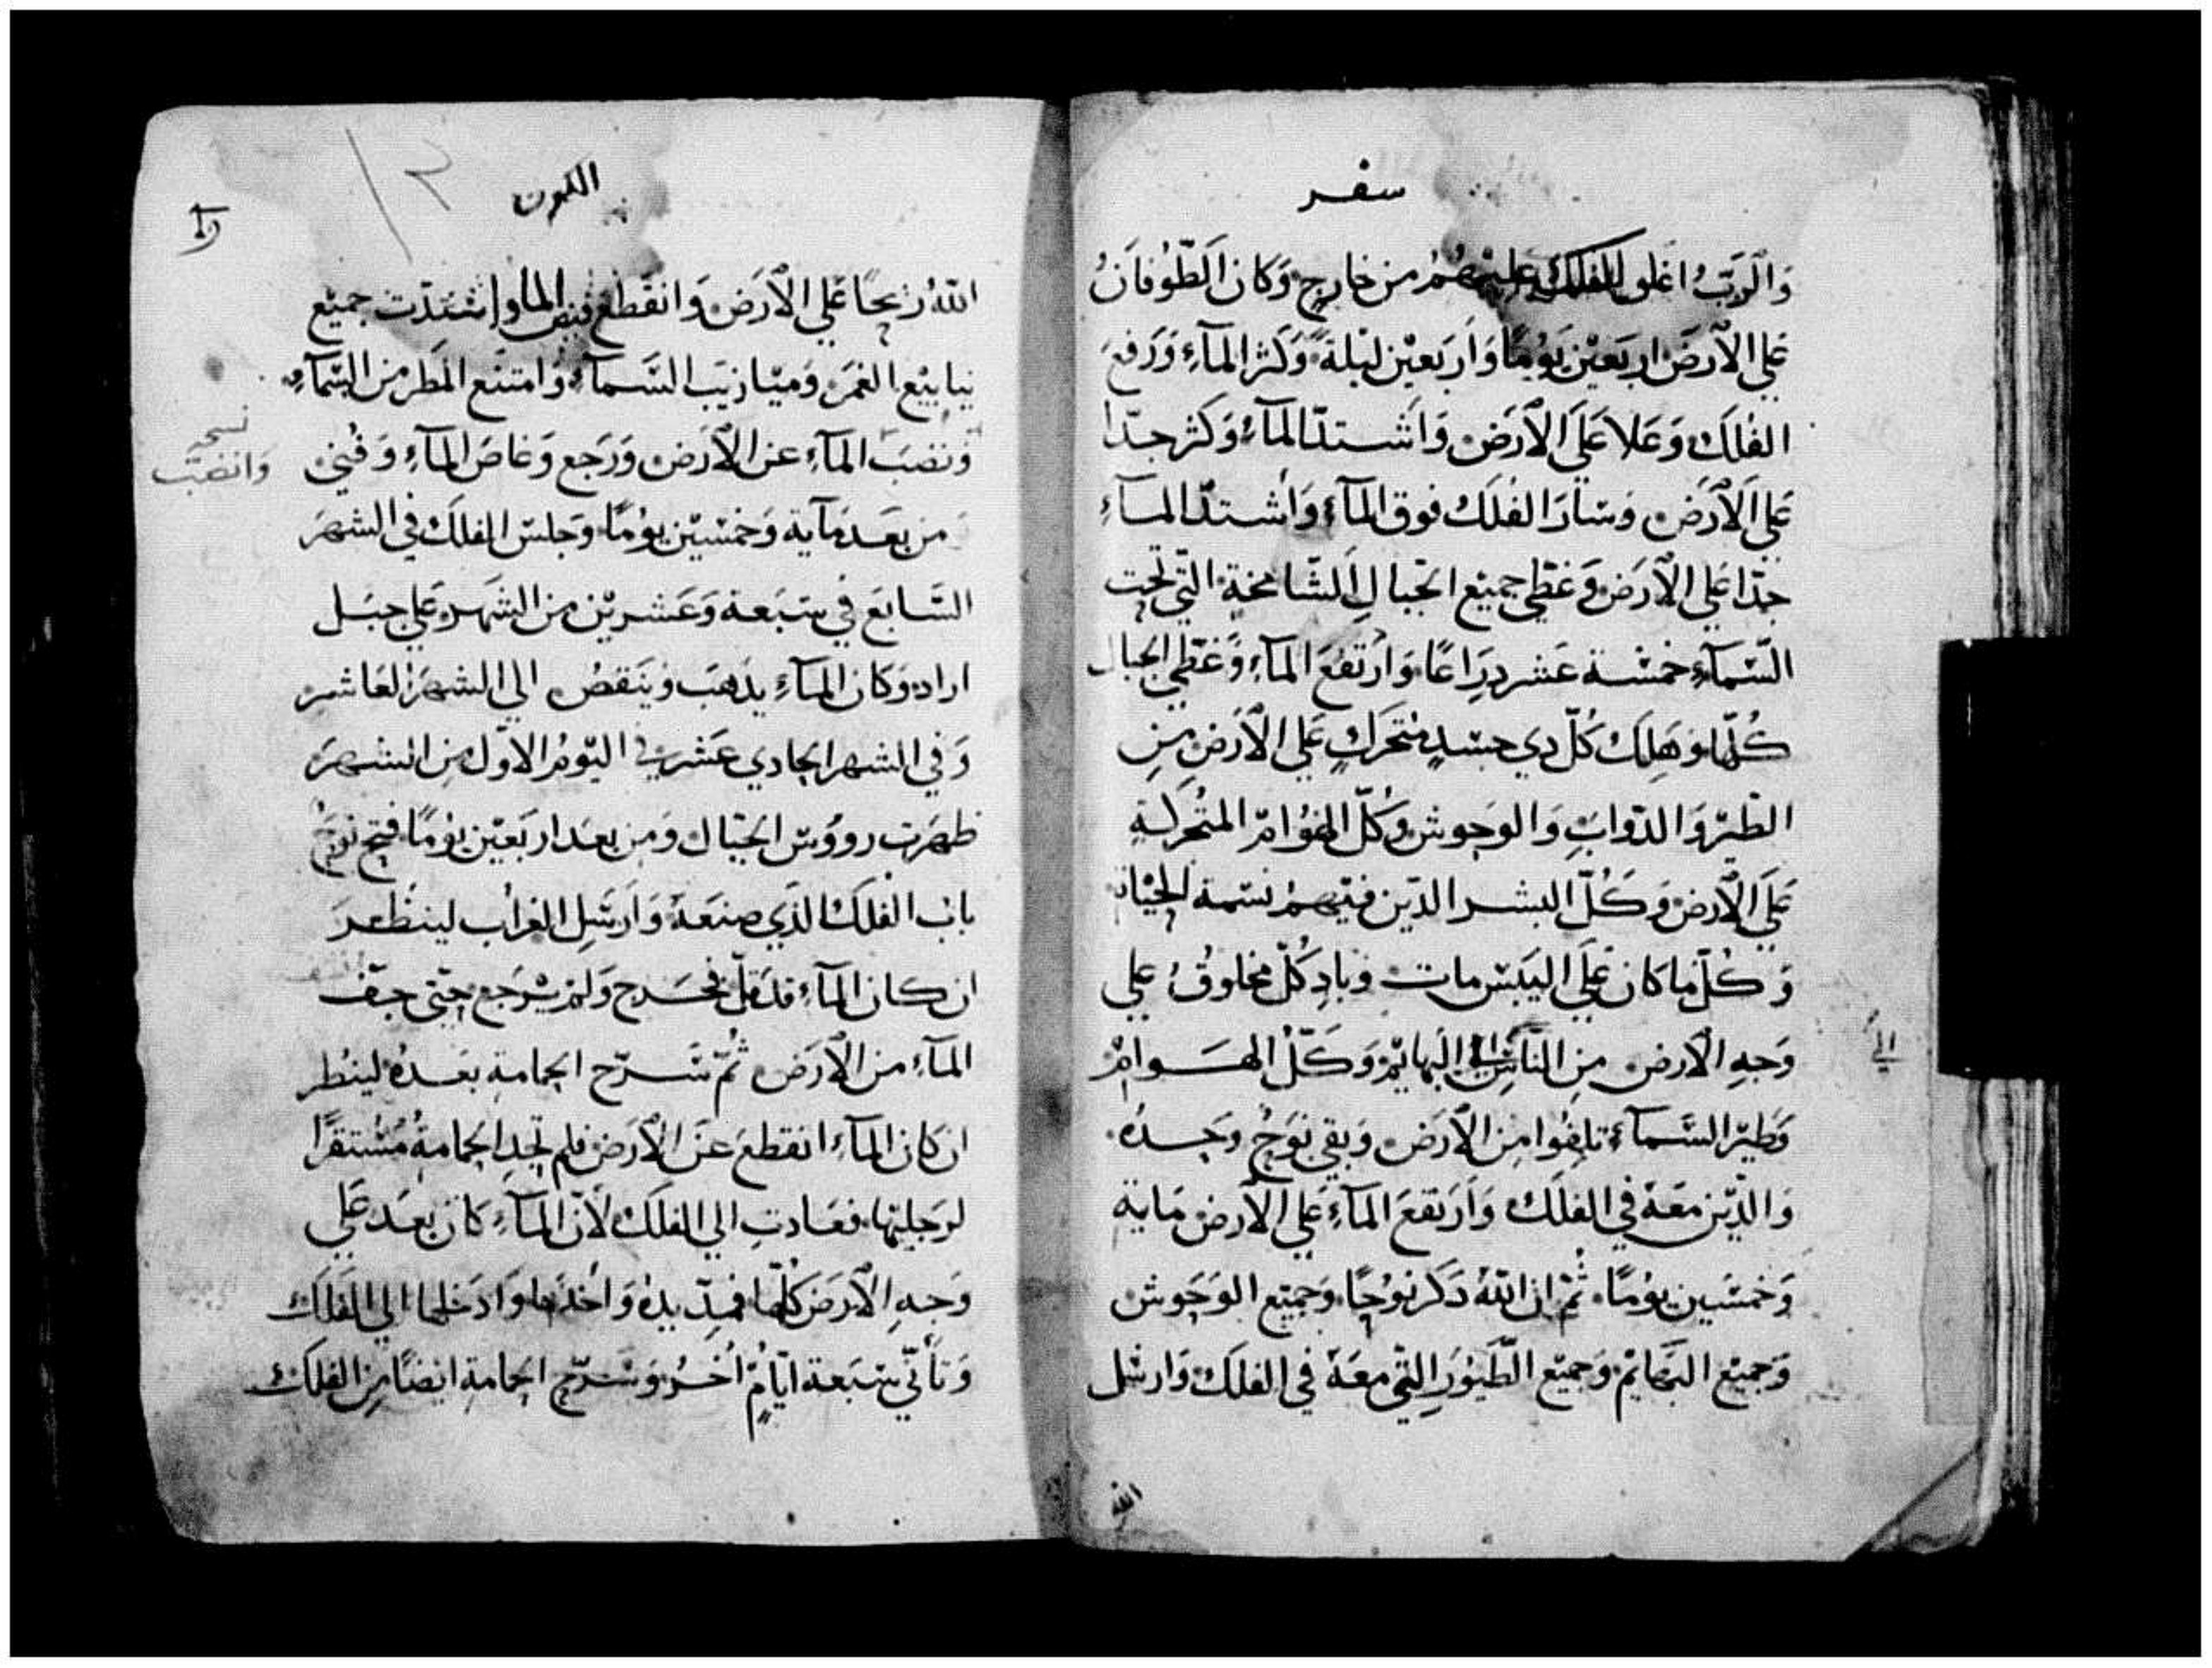 سفر
وَالرَبُّ اغلق الفلك عليهُمُ من خارج وَكان الطّوُفانُ
عَلي الآرضَ اربَعيْن يَوُمًا وَاَربَعيْن ليْلة وَكَثر المآءِ وَرَفعَ
الفُلكَ وَعَلا عَلَي الآرَضِ وَاَشتدّ المآءُ وَكَثر جدّا
عَلي الآرَض وَسَارَ الفُلكُ فوق المآءِ وَاَشتدّ المآءِ
جدّا عَلي الآرَض وَغَطّي جميْع الجبالِ الشّامخة التّي تحت
السَّمآءِ خمسْة عَشر دِرَاعًا وَاَرتفعَ المآءِ وَغَطّي الجبال
كُلّها وَهَلِكَ كُلّ دي جسَدٍ مُتحَركٍ عَلي الآرَض مِنِ
الطّيْر وَالدّوابِ وَالوحوش وَكُلّ الهوُامّ المتُحركةِ
عَلَي الآرض وَكُلّ البشر الدّين فيْهمُ نسَمة الحيْاة
وَكُلّ ما كان عَلَي اليَبَسْ مات وَبادِ كُلّ مخلوقُ علي
وَجهِ الآرض مِنِ النّاسِ الي البهايمْ وَكَلّ الهَوامّ
الي
وَطيْر السَّمآءِ تلِفُوا مِن الآرَض وَبقي نوَحُ وَحدهُ
وَالدّيْن معَهُ في الفلَك وَاَرتفعَ المآءِ عَلي الآرض مَاية
وَخمسَين يوُمًا ثُمّ ان اللهُ دَكر نوُحًا وَجميْع الوَحَوش
وَجميْع البَهايمْ وَجميْع الطّيُوَر التّي معَهُ في الفلكَ وَارسْل
الله
الكون
اللهُ ريحًا عَلي الآرَض وَانقَطع فيض الما وَاِشتدّت جميْع
ينابيْع الغمَر وَميْازيَب السَّمآءِ وَامتنَع المَطر من السّمآءِ
وَنضبَ المآءِ عن الآرَض وَرَجع وَغاصَ المآءِ وَفُنيَ
نسخه
وَانضبّ
من بعَد مَآية وَخمسْيْن يوُمًا وَجلسَ الفلكَ في الشهرَ
السَّابعَ في سَبَعة وَعَشريْن من الشهَر عَلي جبَل
اراد وَكان المآءِ يدَهبَ وَينَقصُ الي الشهرَ العَاشر
وَفي الشهر الحادي عَشر في اليوْمُ الاوَّل مِن الشهرَ
ظهرَت رووُسَ الجبْال وَمِن بعَد اربَعيْن يوُمًا فتح نوَحُ
بابُ الفلكَ الذّي صنعَهُ وَاَرسَل الغراُب لينظُر
ان كان المآءِ قدَ قلّ فخرج وَلمَ يرَجع حتّي جفّ
المآءِ من الآرَض ثُمّ سَرّح الحمامة بعَدهُ لينُطر
ان كان المآءِ انقطعَ عنَ الآرَض فلم تجدِ الحمامةُ مُسْتقرًّا
لرَجليْها فعَادتِ الي الفلكَ لآنّ المآءِ كان بعدَ عَلي
وَجهِ الآرَض كُلّها فمدّ يدهُ وَاَخدَها وَادَخلها الي الفلكَ
وَتأنّي سَبَعة ايّامٍ اُخرُ وَسَرّح الحمامة ايضًا مِن الفلكَ